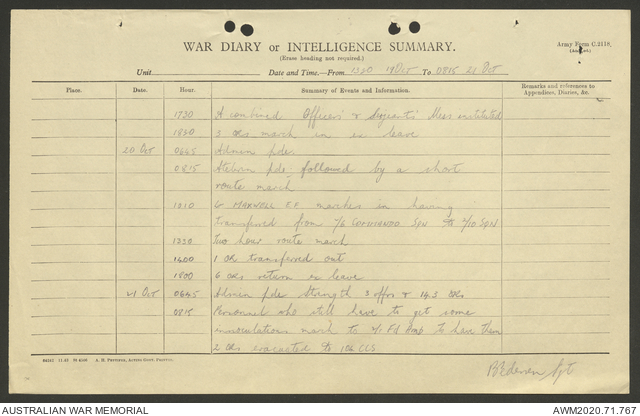 WAR DIARY or INTELLIGENCE SUMMARY.
Army Form C.2118.
(Erase heading not required.)
Unit Date and Time—From 1320 19 Oct To 0815 21 Oct
Place. Date. Hour. Summary of Events and Information. Remarks and references to Appendices, Diaries, &c.
1730 A combined Officers' & Sergeants' Mess instituted
1830 3 ORs march in ex leave
20 Oct 0645 Admin pde.
0815 pde, followed by a short
route march
1010 Lt MAXWELL E.F. marches in having
transferred from 2/6 COMMANDO SQN to 2/10 SQN
1330 Two hour route march
1400 1 OR transferred out
1800 6 ORs return ex leave
21 Oct 0645 Admin pde Strength 3 offrs & 143 ORs
0815 Personnel who still have to get some
innoculations march to Fd Amb to have them
2 ORs evacuated to 106 CCS
A. H. PETTIFER, ACTING GOVT. PRINTER.
Cpt
AUSTRALIAN WAR MEMORIAL
AWM2020.71.767